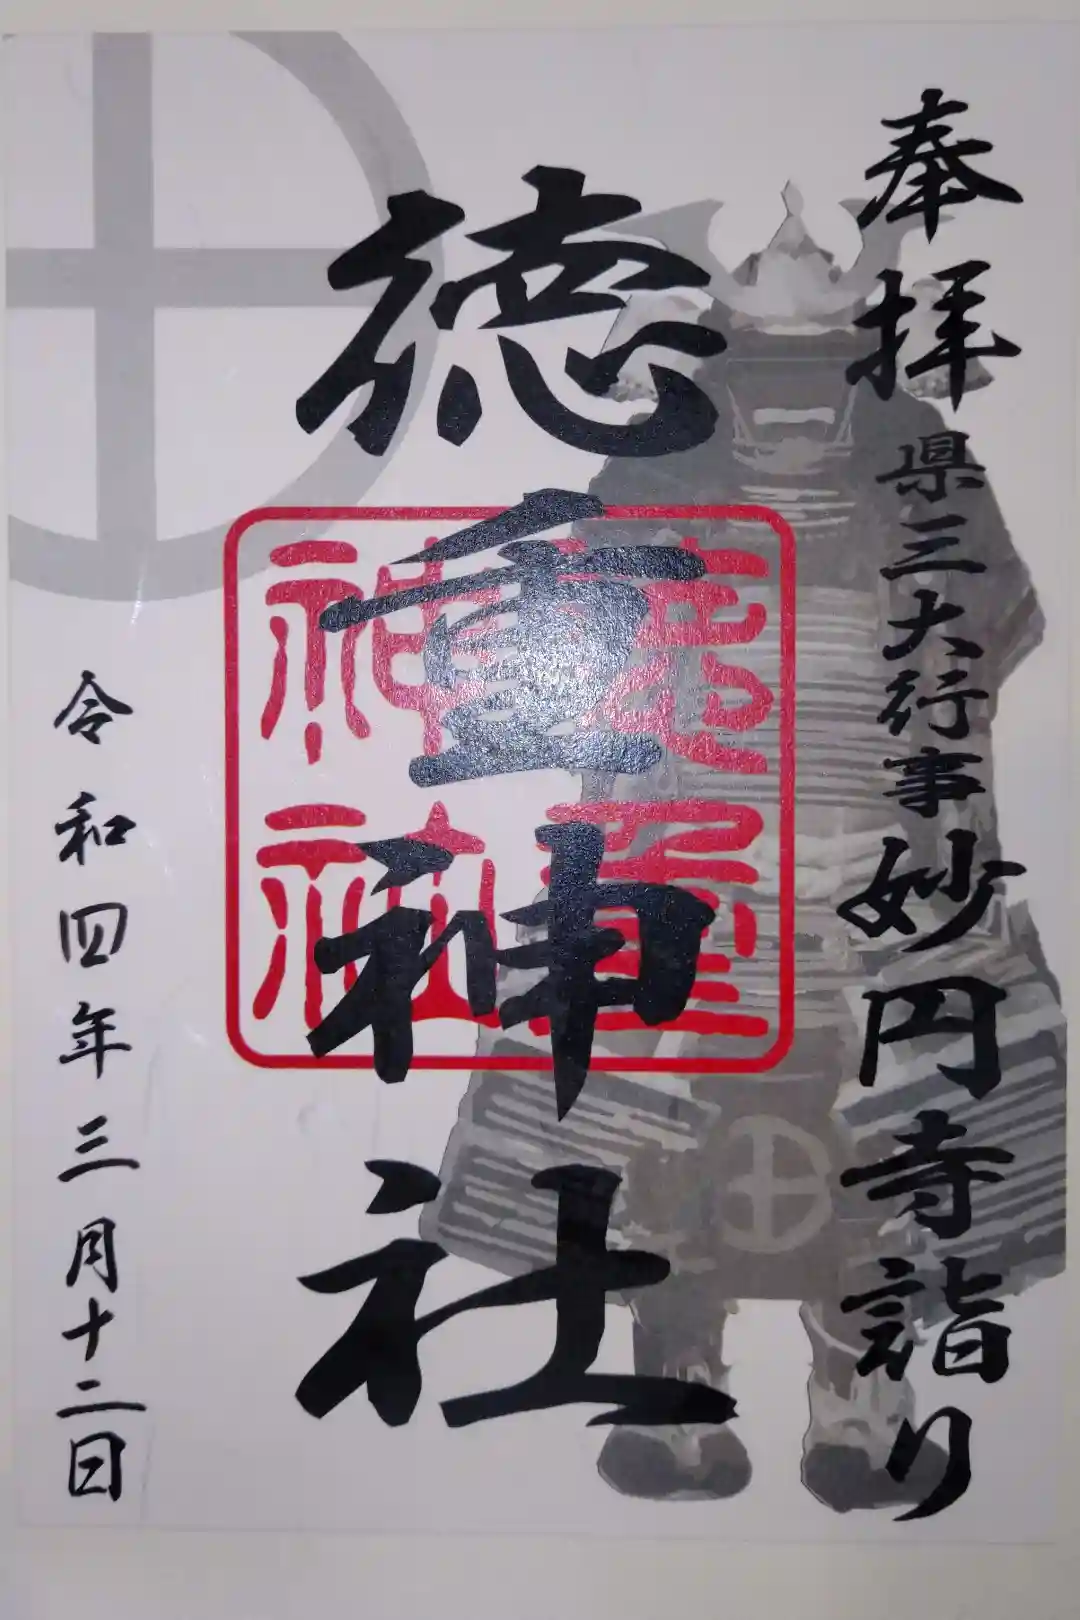 奉拝 県三大行事 妙円寺詣り
徳重神社
徳重
神社
令和四年三月十二日